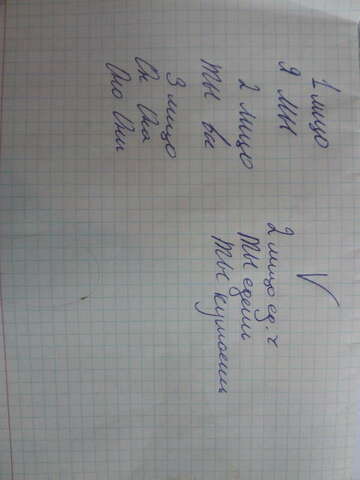 1 лицо
я мы
2 лицо
ты вы
3 лицо
Он Она
Оно Они
V
2 лицо ед. ч
ты едешь
ты